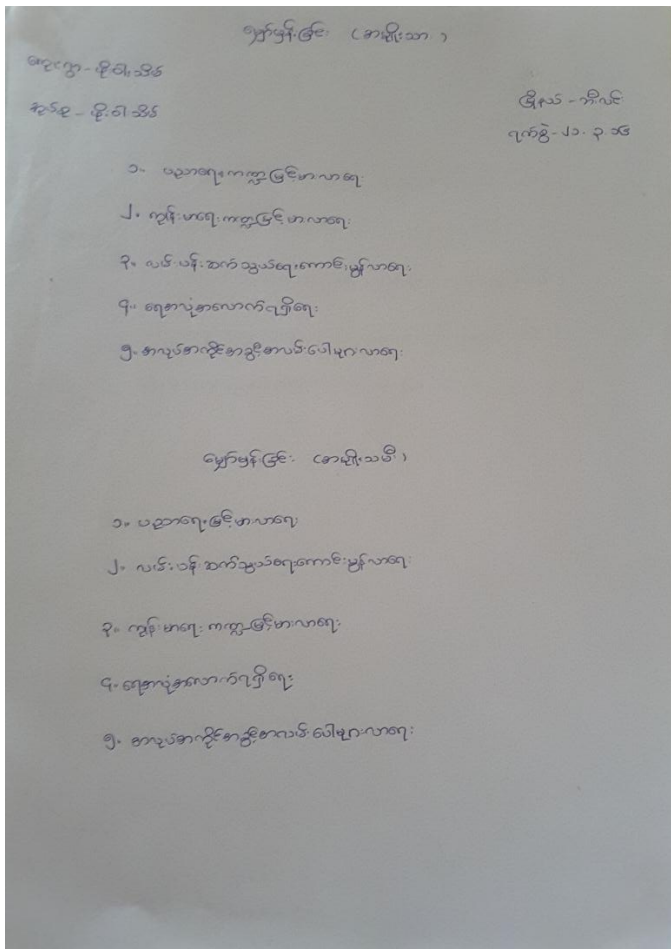 မျှော်မှန်းခြင်း (အမျိုးသား)
ကျေးရွာ - ဇီးဝါးသိမ်
အုပ်စု - ဇီးဝါးသိမ်
မြို့နယ် - ဘီးလင်း
ရက်စွဲ - ၂၁. ၃. ၁၆
၁။ ပညာရေးကဏ္ဍမြင့်မားလာရေး
၂။ ကျွန်းမာရေးကဏ္ဍမြင့်မားလာရေး
၃။ လမ်းပန်းဆက်သွယ်ရေးကောင်းမွန်လာရေး
၄။ ရေအလုံအလောက်ရရှိရေး
၅။ အလုပ်အကိုင်အခွင့်အလမ်းပေါများလာရေး
မျှော်မှန်းခြင်း (အမျိုးသမီး)
၁။ ပညာရေးမြင့်မားလာရေး
၂။ လမ်းပန်းဆက်သွယ်ရေးကောင်းမွန်လာရေး
၃။ ကျွန်းမာရေးကဏ္ဍမြင့်မားလာရေး
၄။ ရေအလုံအလောက်ရရှိရေး
၅။ အလုပ်အကိုင်အခွင့်အလမ်းပေါများလာရေး